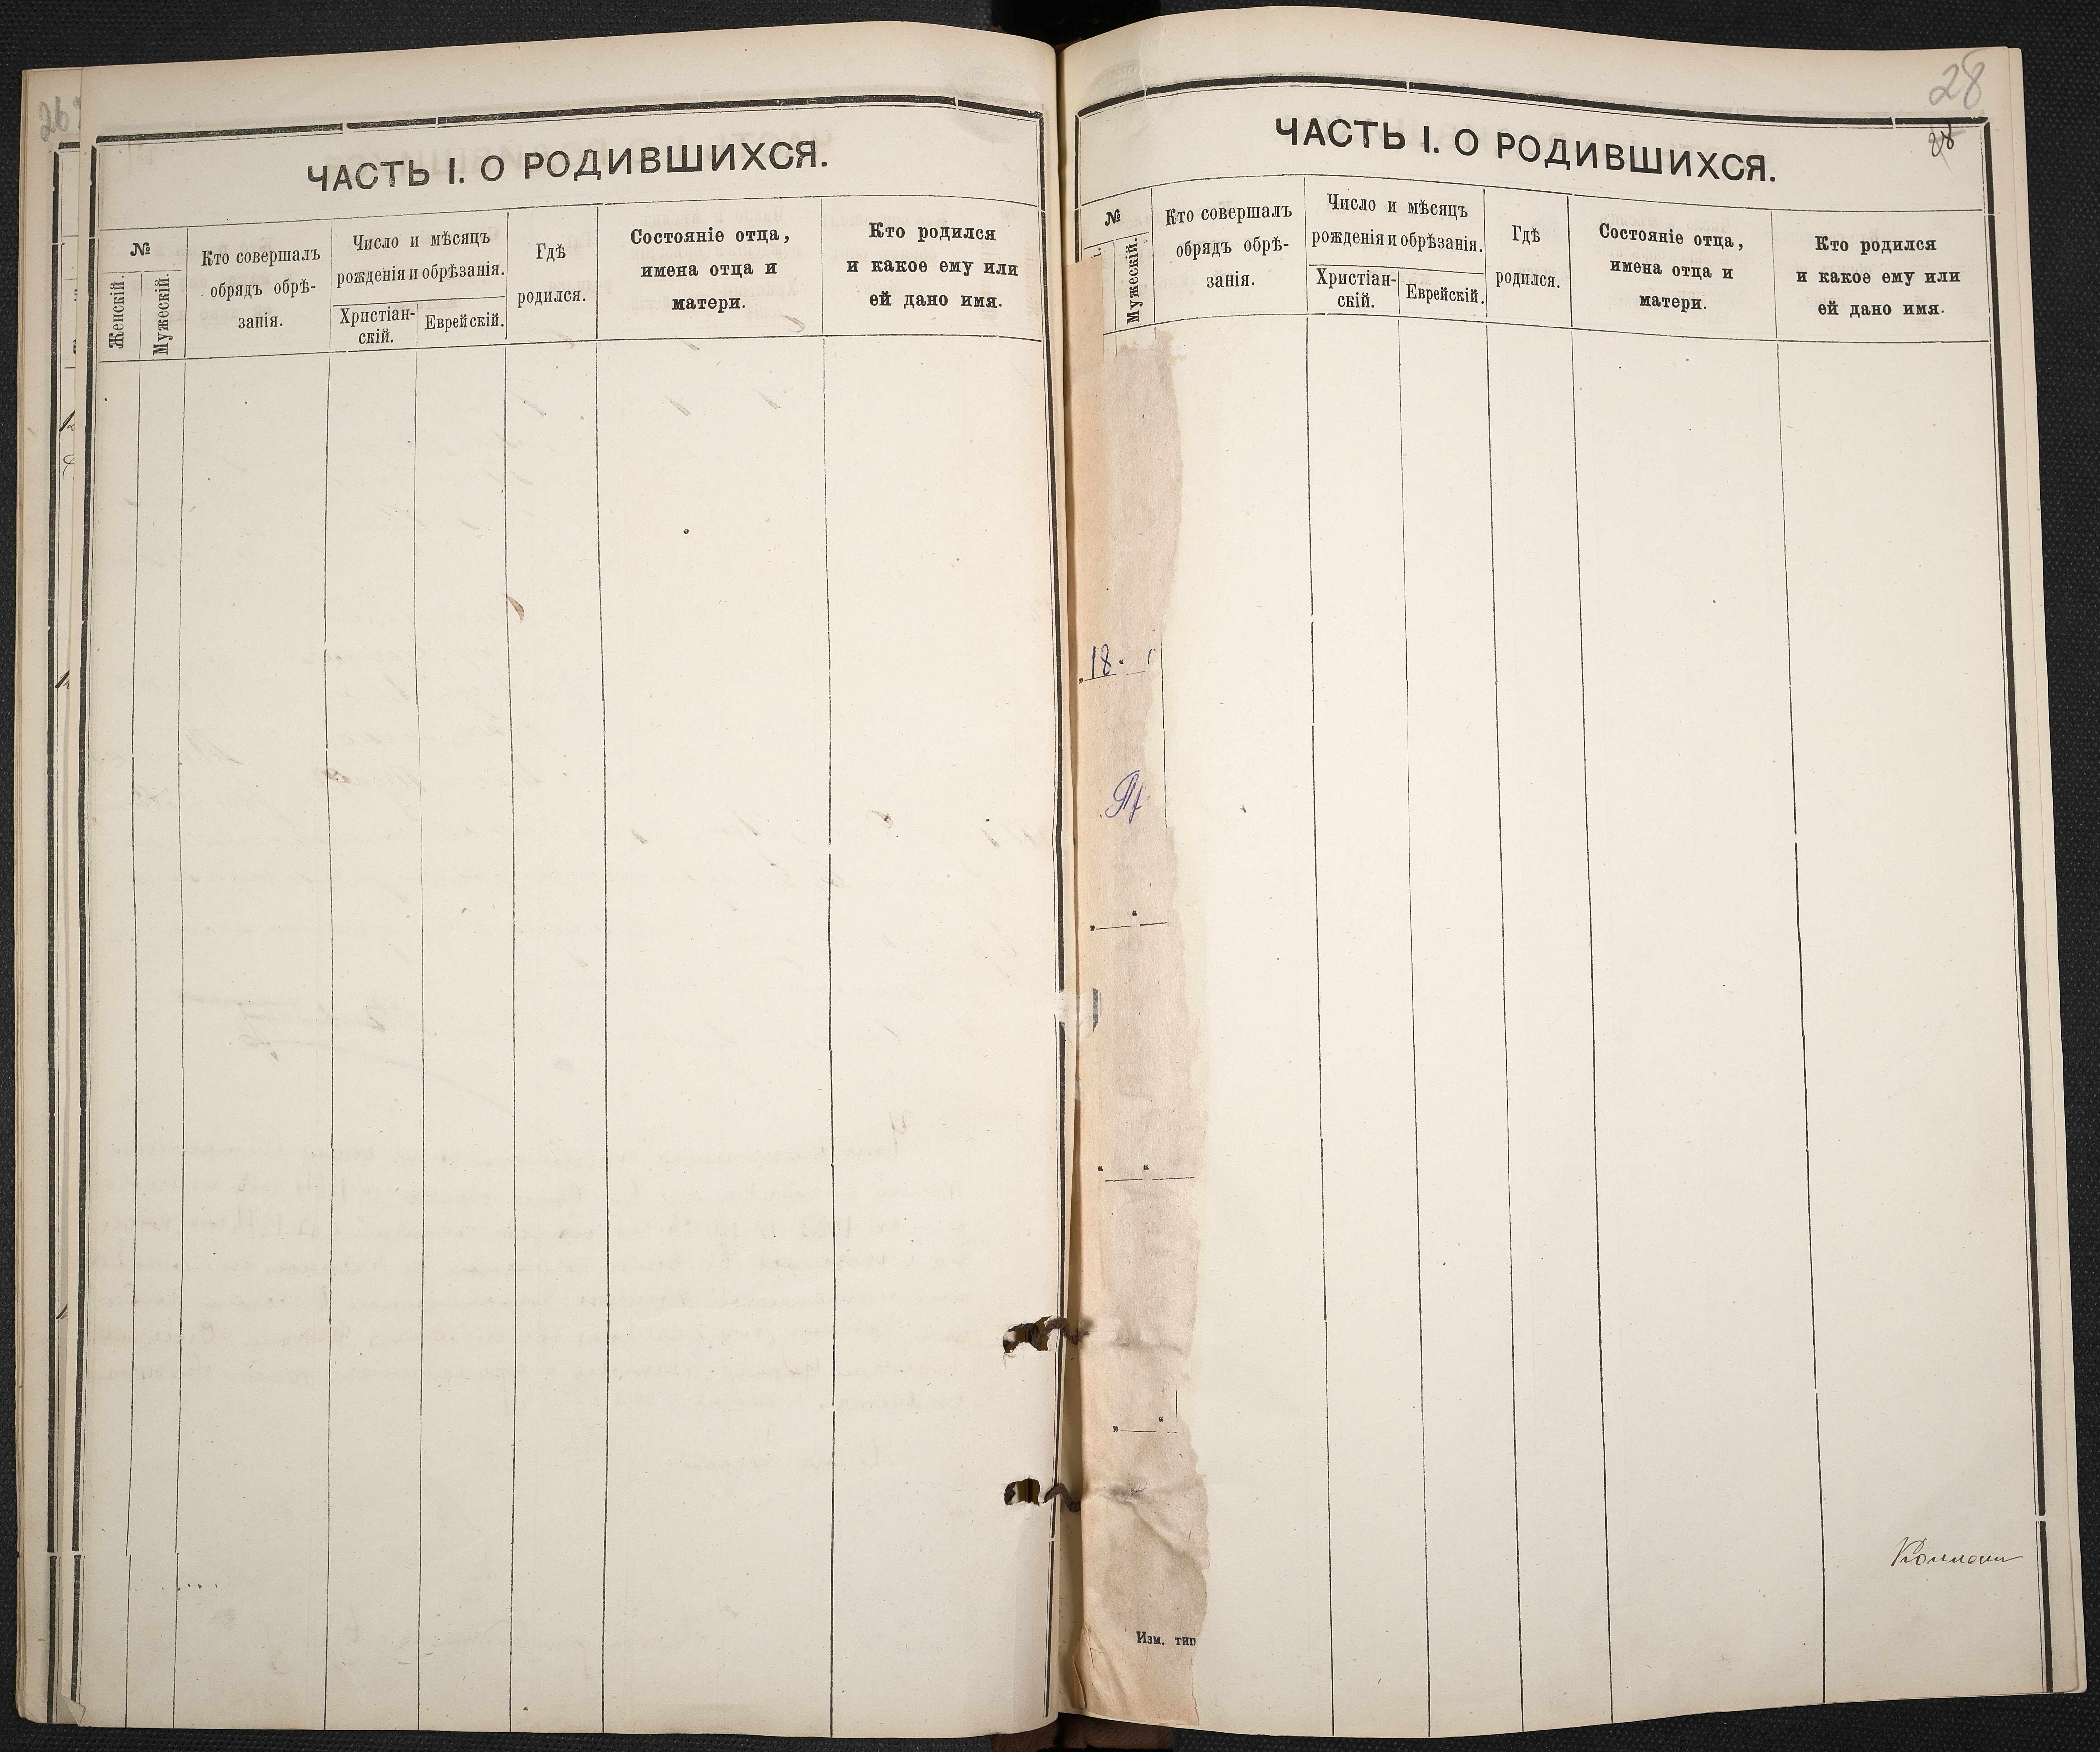 ЧАСТЬ I. О РОДИВШИХСЯ.
№
Женскій.
Мужескій.
Кто совершалъ
обрядъ обрѣ-
занія.
Число и мѣсяцъ
рожденія и обрѣзанія.
Христіан-
скій.
Еврейскій.
Гдѣ
родился.
Состояніе отца,
имена отца и
матери.
Кто родился
и какое ему или
ей дано имя.
28
28
ЧАСТЬ I. О РОДИВШИХСЯ.
№
Мужескій.
Кто совершалъ
обрядъ обрѣ-
занія.
Число и мѣсяцъ
рожденія и обрѣзанія.
Христіан-
скій.
Еврейскій.
Гдѣ
родился.
Состояніе отца,
имена отца и
матери.
Кто родился
и какое ему или
ей дано имя.
18
Изм. тип